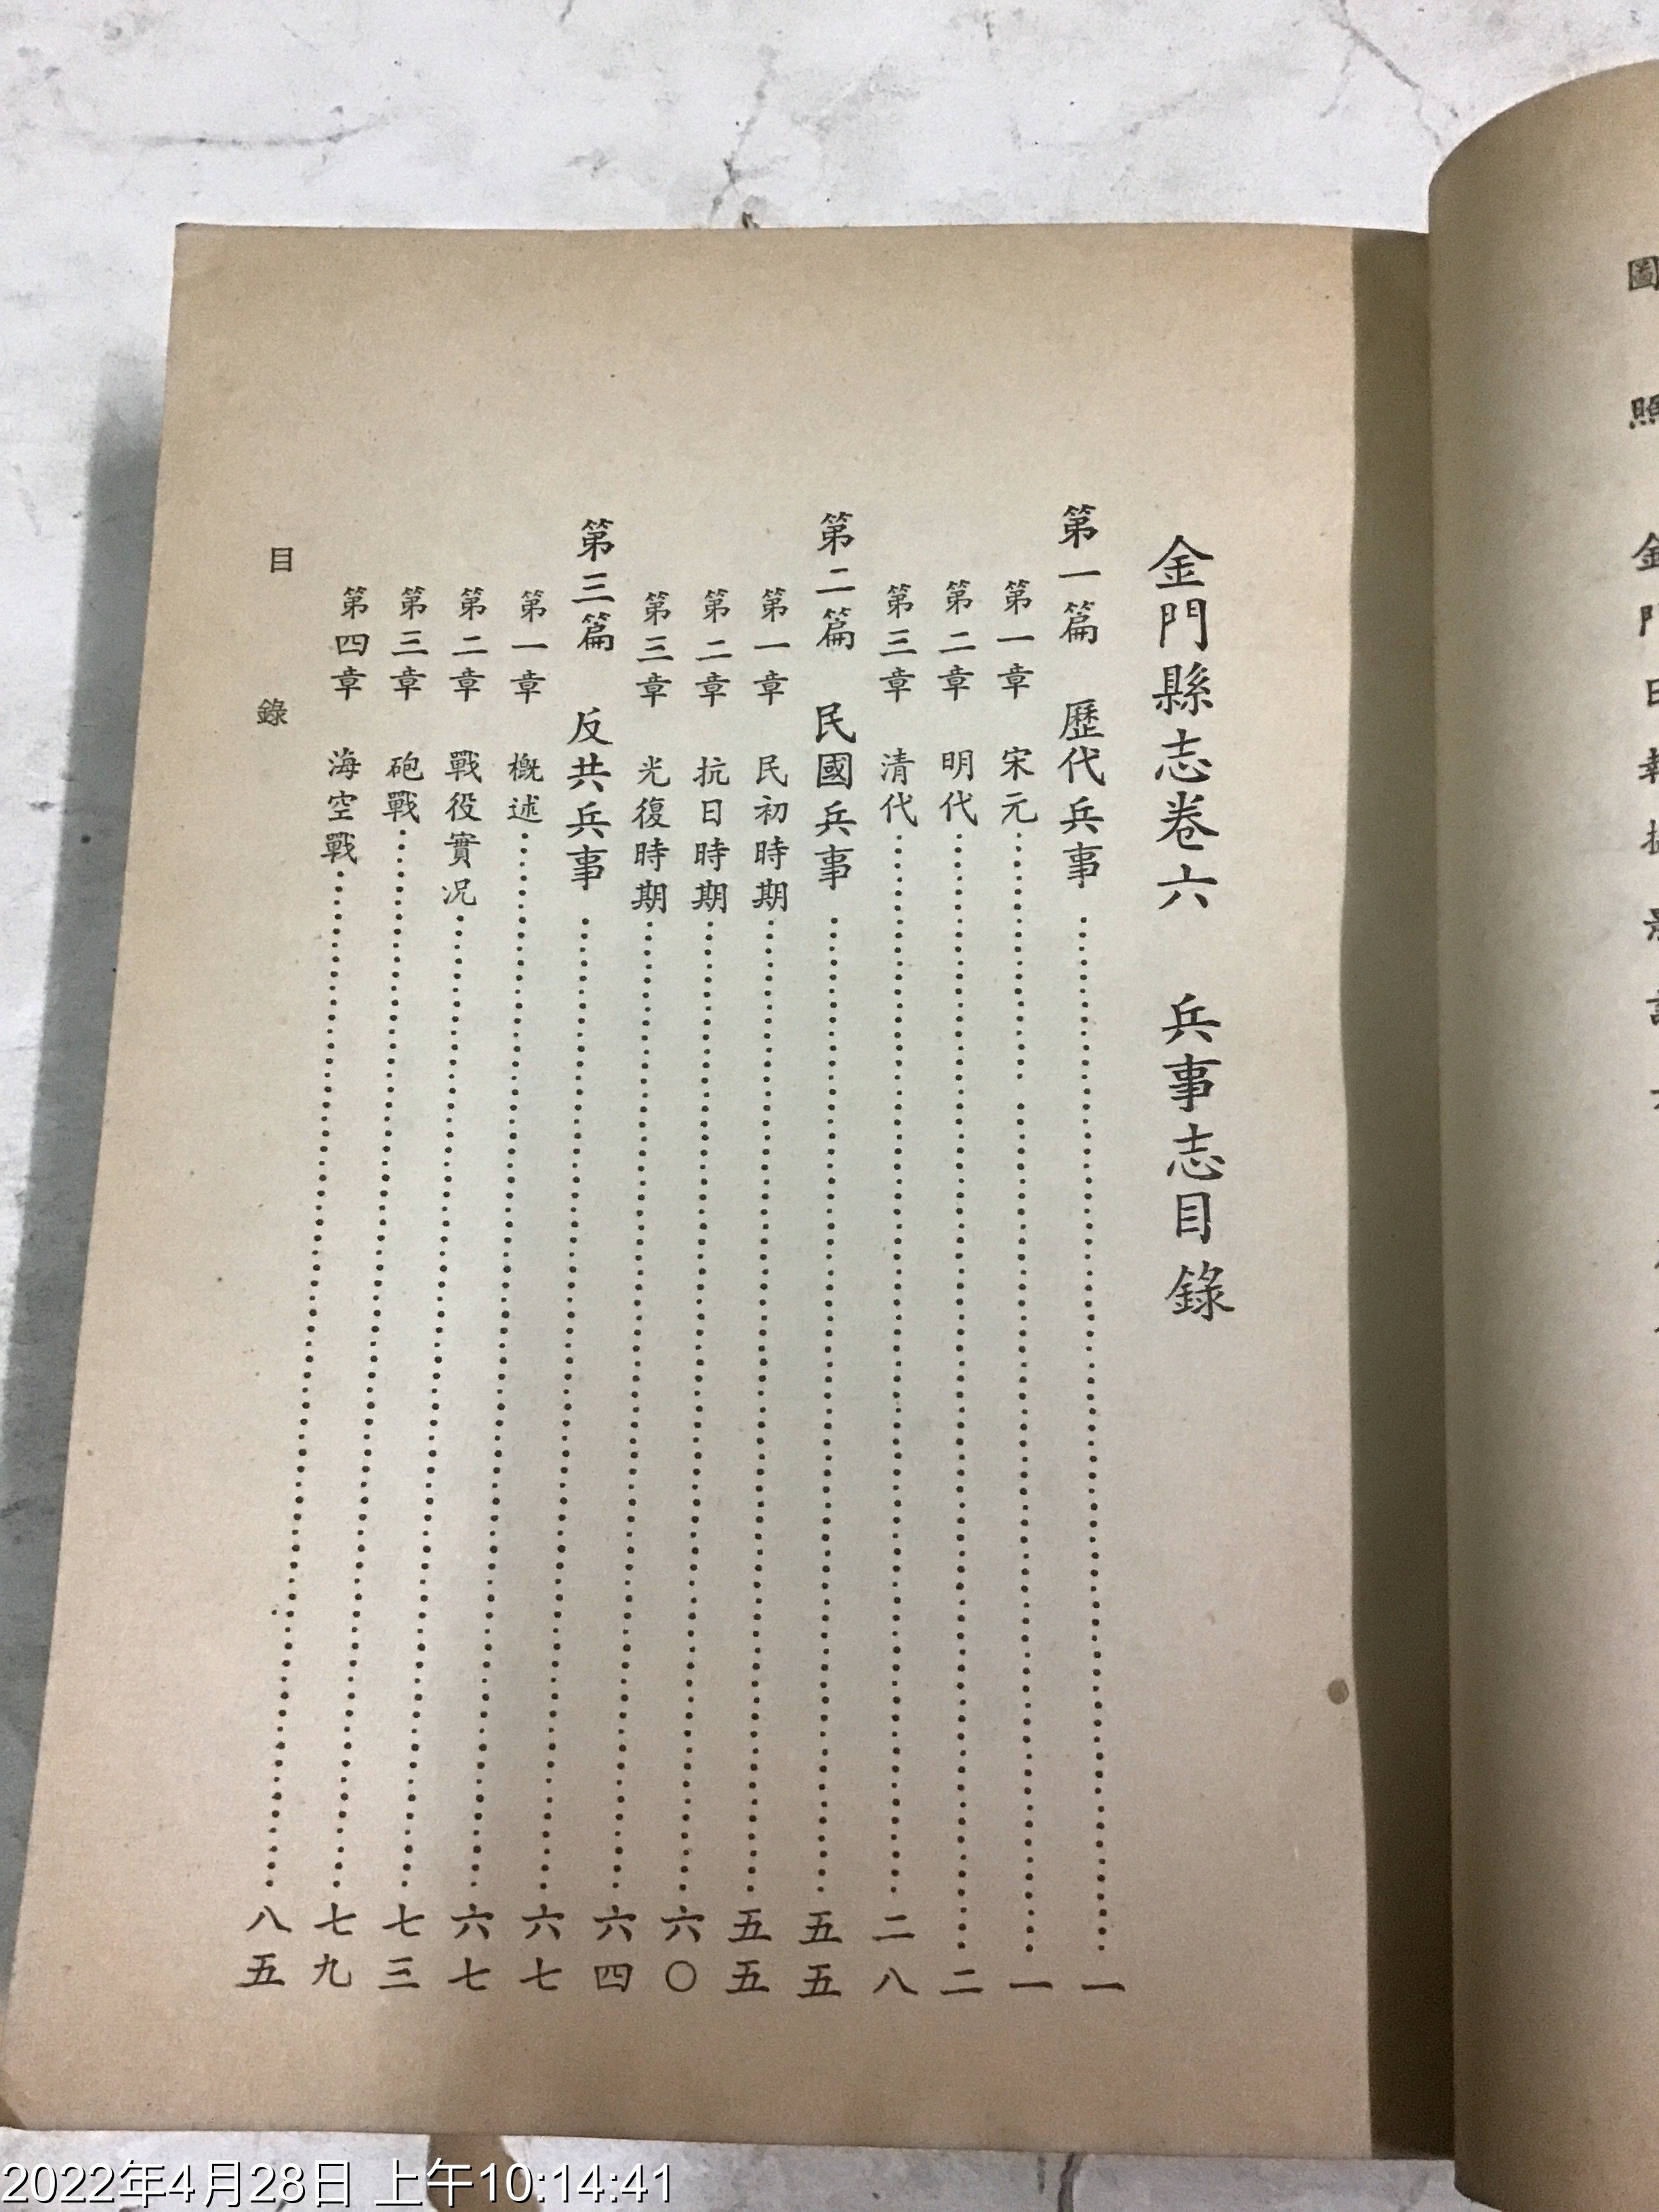 圖照
金門日報
金門縣志卷六　兵事志目錄
第一篇　歷代兵事…………一
第一章　宋元…………一
第二章　明代…………二
第三章　清代…………二八
第二篇　民國兵事…………五五
第一章　民初時期…………五五
第二章　抗日時期…………六〇
第三章　光復時期…………六四
第三篇　反共兵事…………六七
第一章　概述…………六七
第二章　戰役實况…………七三
第三章　砲戰…………七九
第四章　海空戰…………八五
目錄
2022年4月28日 上午10:14:41